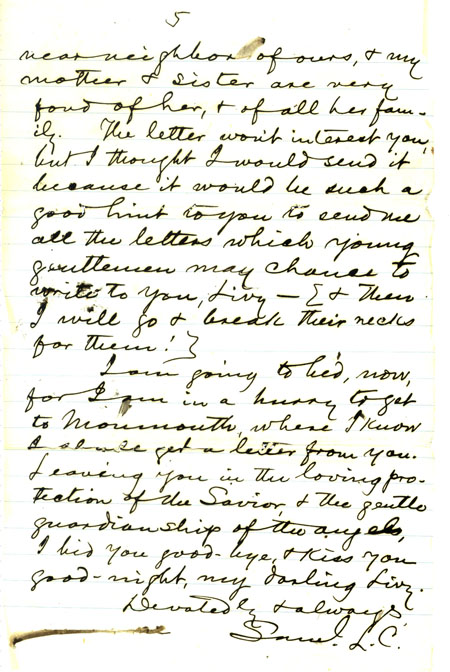 5
near neighbor of ours, & my
mother & sister are very
fond of her, & of all her fam-
ily. The letter won't interest you,
but I thought I would send it
because it would be such a
good hint to you to send me
all the letters which young
gentlemen may chance to
write to you, Livy — { & then
I will go & break their necks
for them! }
I am going to bed, now,
for I am in a hurry to get
to Monmouth, where I know
I get a letter from you.
Leaving you in the loving pro-
tection of the Savior, & the gentle
guardianship of the angels,
I bid you good-bye, & kiss you
good-night, my darling Livy.
Devotedly & always
Saml. L. C.